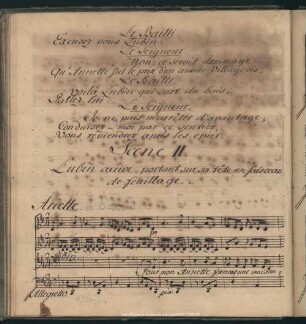 Le Bailli
Excusez vous Lubin.
Le Seigneur
Non, ce seroit dommage
Qu'Annette fut le prix d'un amour villageois
Le Bailli
Voilà Lubin qui sort du bois,
Parlez lui.
Le Seigneur.
Je ne puis m'arrêter d'avantage;
Conduisez-moi par ce sentier,
Nous reviendrons après les épier.
Scene II
Lubin arrive, portant sur sa tête un faisceau
de feuillage.
Ariette
Lubin
Pour mon Annette formons une maison
Allegretto